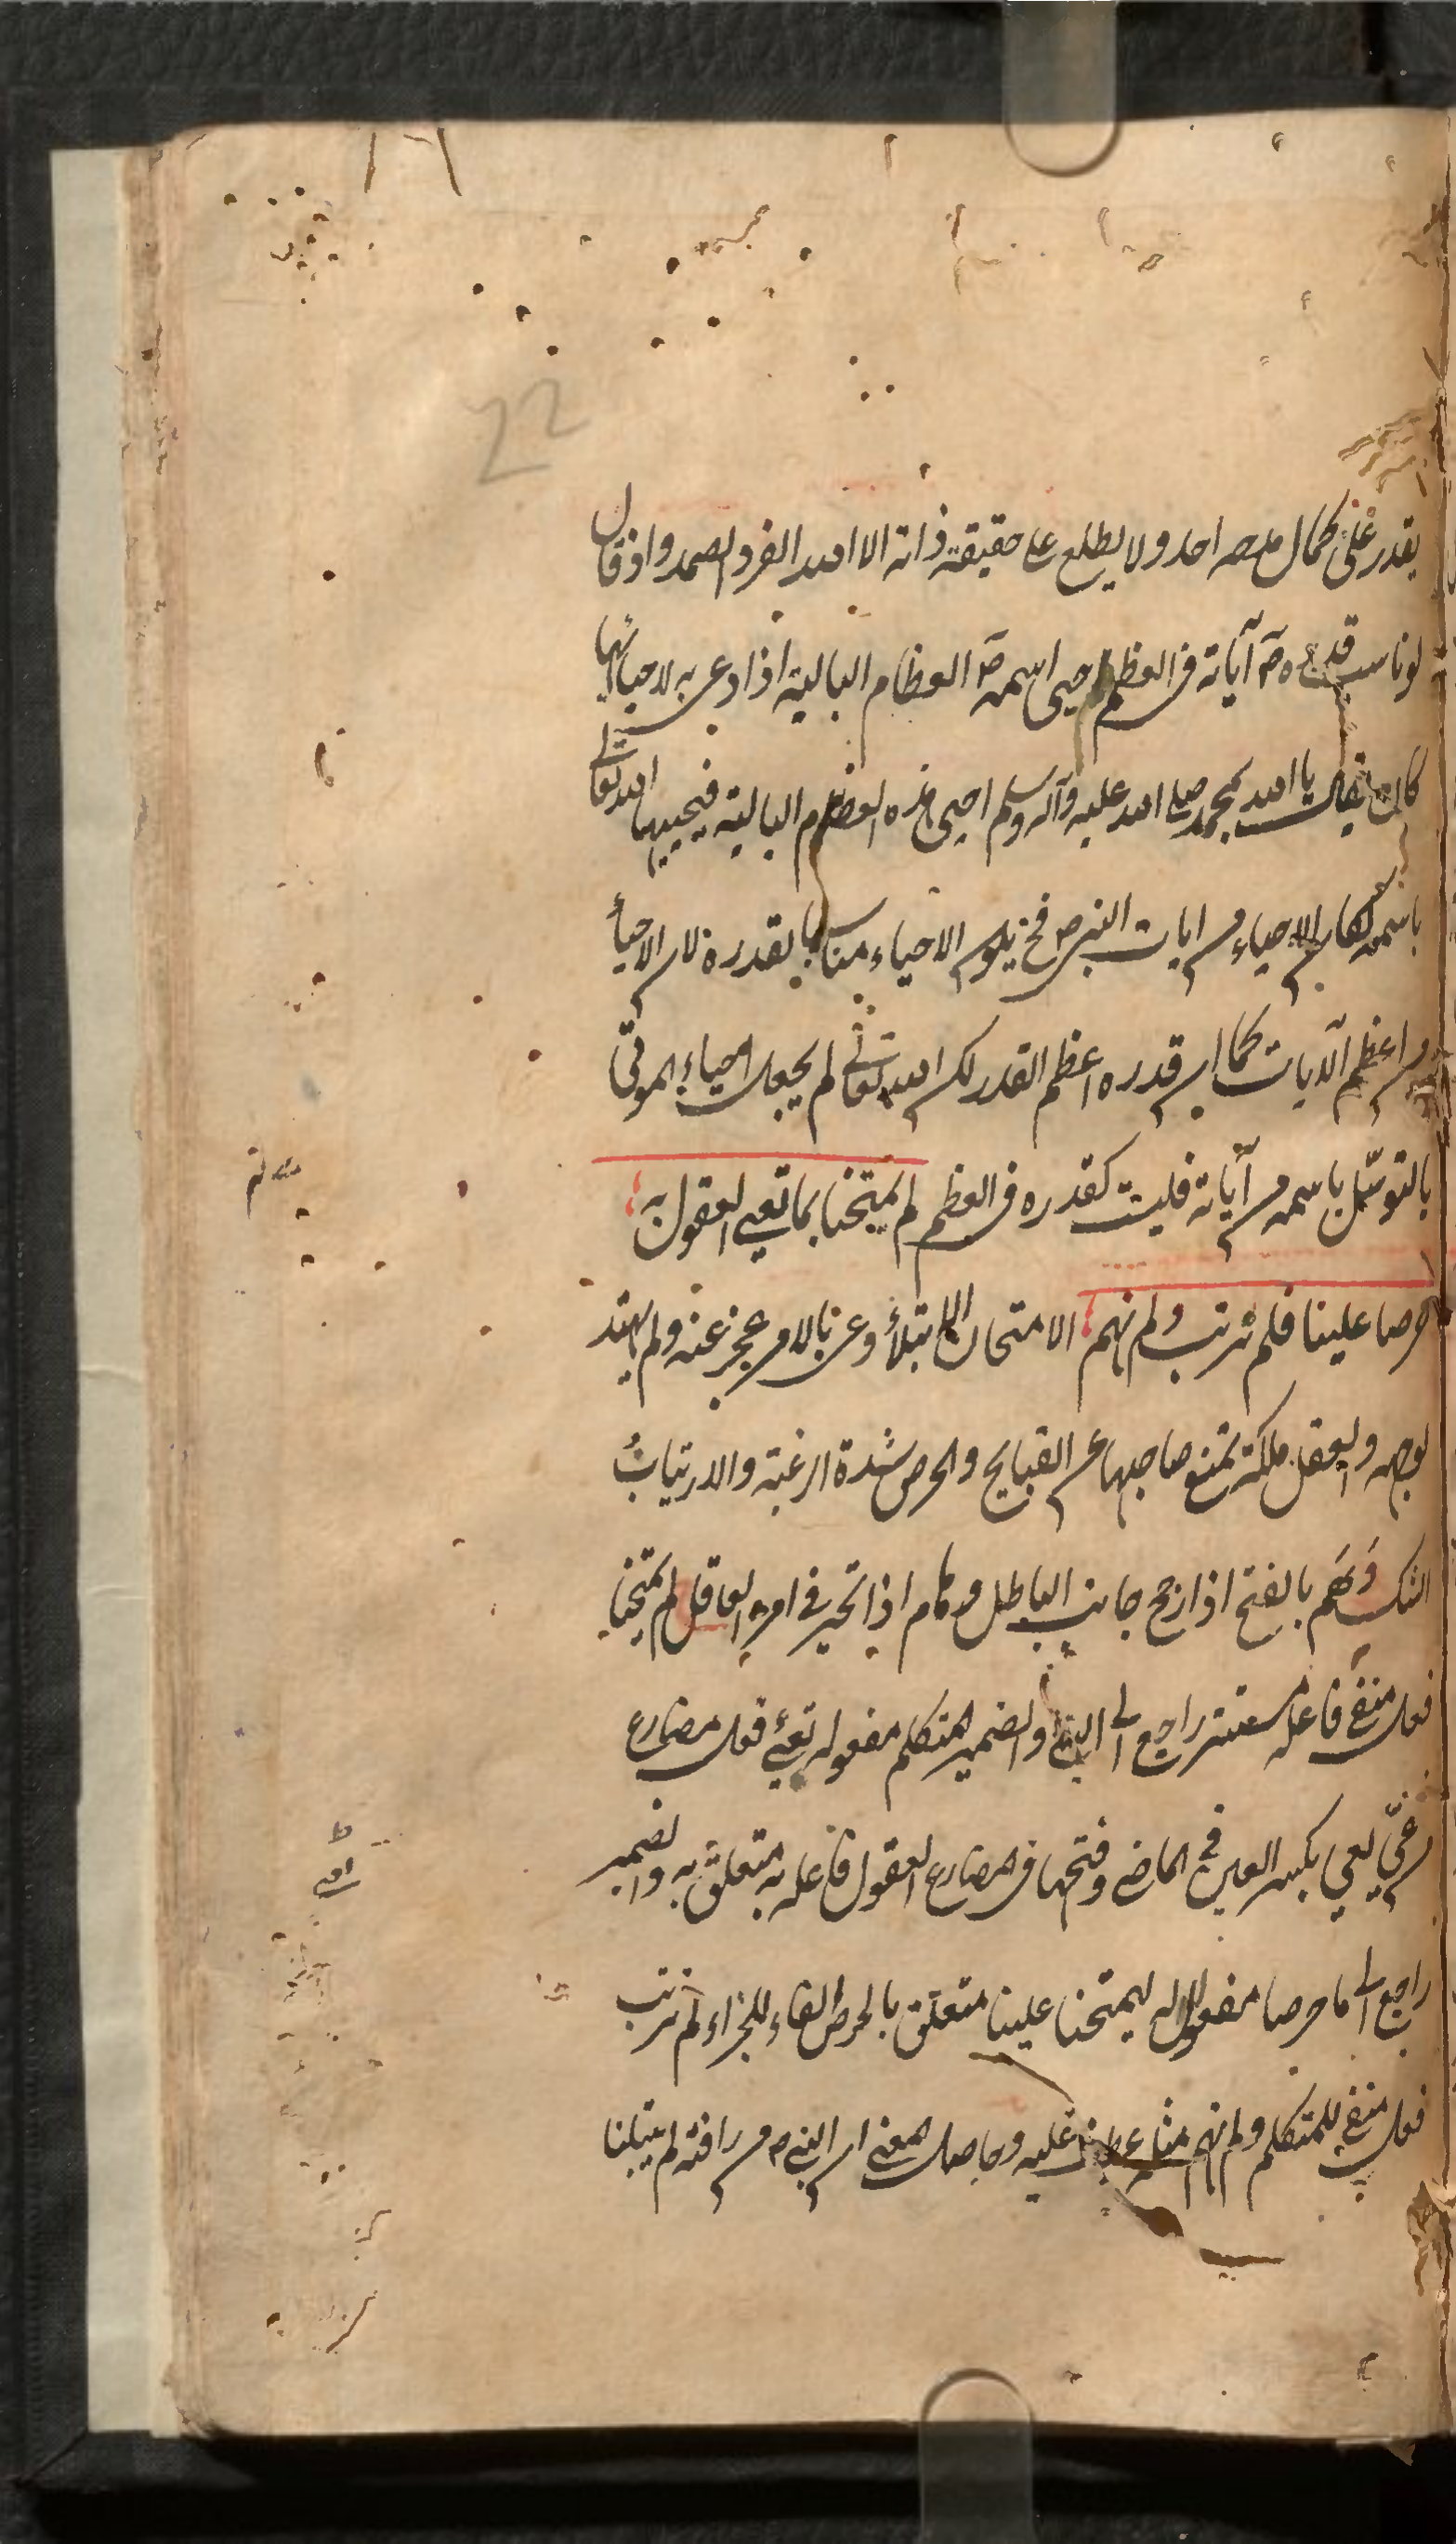 22
يقدر على كمال مدحه احد ولا يطلع على حقيقة ذاته الا الله الفرد الصمد واذ قال
لو ناسبت قدره ص آياته في العظم احيى اسمه ص العظام البالية اذا دعى به لاحيائها
كان يقال يا الله بمحمد صلى الله عليه وآله وسلم احيى هذه العظام البالية فيحييها الله تعالى
باسمه لكان الاحياء من ايات النبي ص فح يكون الاحياء مناسبا بقدره لان الاحياء
من اعظم الآيات كما ان قدره اعظم القدر لكن الله تعالى لم يجعل احياء الموتى
بالتوسّل باسمه من آياته فليست كقدره في العظم لم يمتحنا بما تعيى العقول به
حرصا علينا فلم نرتب ولم نهم الامتحان الابتلاء وعى بالامر عجز عنه ولم يهتد
لوجهه والعقل ملكة تمنع صاحبها عن القبايح والحرص شدة الرغبة والارتياب
الشك وَهَم بالفتح اذا رجح جانب الباطل وهام اذا تحير في امره العاقل لم يمتحنا
فعل منفي فاعله مستتر راجع الى النبي والضمير المتكلم مفعوله تعيى فعل مضارع
من عيّ يعي بكسر العين في الماضي وفتحها في المضارع العقول فاعله به متعلق به والضمير
راجع الى ما حرصا مفعول له ليمتحنا علينا متعلق بالحرص الفاء للجزاء لم نرتب
فعل منفي للمتكلم ولم نهم مثله عطف عليه وحاصل المعنى ان النبي ص من رافته لم يبتلنا